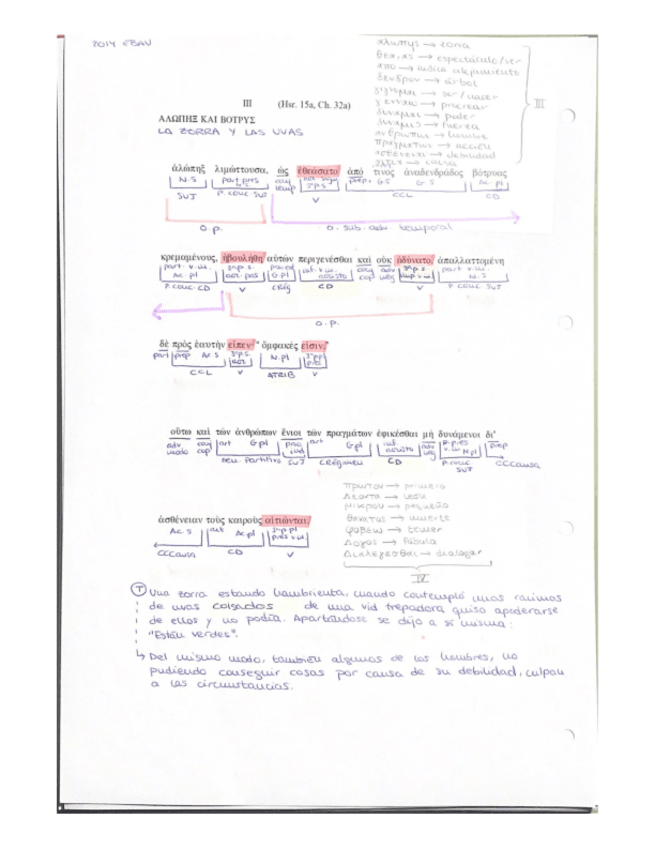 2014 EBAU
αλωπης → zorra
θεα, ας → espectáculo/ver
απο → indica alejamiento
δενδρον → árbol
γιγνομαι → ser/nacer
γενναω → procrear
δυναμαι → poder
δυναμις → fuerza
ανθρωπος → hombre
πραγματων → acción
ασθενεια → debilidad
→ causa
III
III (Hsr. 15a, Ch. 32a)
ΑΛΩΠΗΞ ΚΑΙ ΒΟΤΡΥΣ
LA ZORRA Y LAS UVAS
ἀλώπηξ λιμώττουσα, ὡς ἐθεάσατο ἀπό τινος ἀναδενδράδος βότρυας
N.S part.pres conj temp 3ªp.s prep. G.S G.S Ac.pl
SUJ P. conc SUJ V CCL CD
O.P. O. sub. adv temporal
κρεμαμένους, ἠβουλήθη αὐτῶν περιγενέσθαι καὶ οὐκ ἠδύνατο, ἀπαλλαττομένη
part. v.m. Ac.pl 3ªp.s. aor.pas G.pl inf. v.m. aoristo conj cop adv neg 3ªp.s part v.m. N.S
P. conc. CD V CRég CD V P conc SUJ
O.P.
δὲ πρὸς ἑαυτὴν εἶπεν· "ὄμφακές εἰσιν."
part prep Ac.S 3ªp.s aor N.pl 3ªp.p pres
CCL V ATRIB V
οὕτω καὶ τῶν ἀνθρώπων ἔνιοι τῶν πραγμάτων ἐφικέσθαι μὴ δυνάμενοι δι'
adv modo conj cop art G.pl art G.pl inf. aoristo adv neg p.pres v.m. N.pl prep
Gen. Partitivo SUJ CRégimen CD P.conc SUJ CCCausa
ἀσθένειαν τοὺς καιροὺς αἰτιῶνται.
Ac.S art Ac.pl 3ªp.pl pres v.m
CCCausa CD V
πρωτον → primero
λεοντα → león
μικρου → pequeño
θανατος → muerte
φοβεω → temer
λογος → fábula
διαλεγεσθαι → dialogar
IV
T Una zorra estando hambrienta, cuando contempló unos racimos
de uvas colgados de una vid trepadora quiso apoderarse
de ellos y no podía. Apartándose se dijo a sí misma:
"Están verdes".
↳ Del mismo modo, también algunos de los hombres, no
pudiendo conseguir cosas por causa de su debilidad, culpan
a las circunstancias.